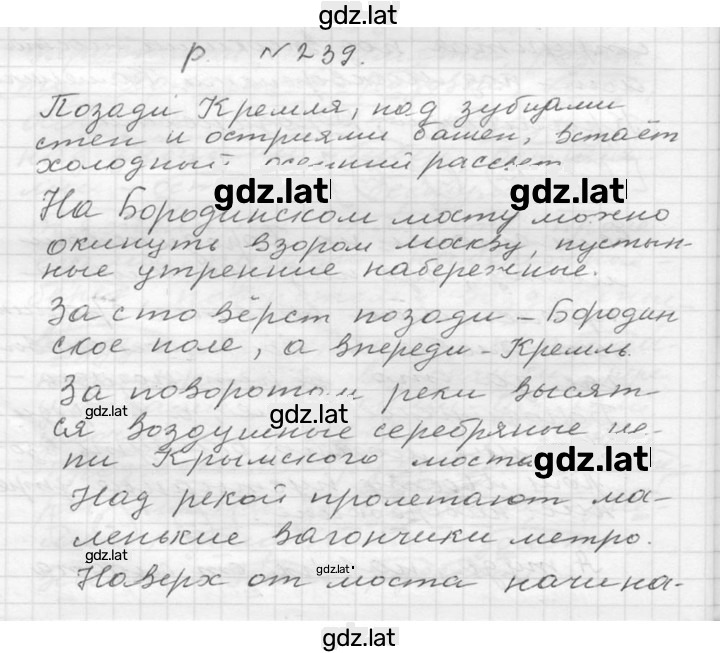 gdz.lat
р. №239.
Позади Кремля, над зубцами
стен и остриями башен, встаёт
холодный осенний рассвет
gdz.lat gdz.lat
На Бородинском мосту можно
окинуть взором москву, пустын-
ные утренние набережные.
За сто вёрст позади - Бородин
ское поле, а впереди - Кремль.
За поворотом реки высят-
gdz.lat gdz.lat
ся воздушные серебряные це-
пи Крымского моста
gdz.lat
Над рекой пролетают ма-
ленькие вагончики метро.
gdz.lat gdz.lat
Наверх от моста начина-
gdz.lat